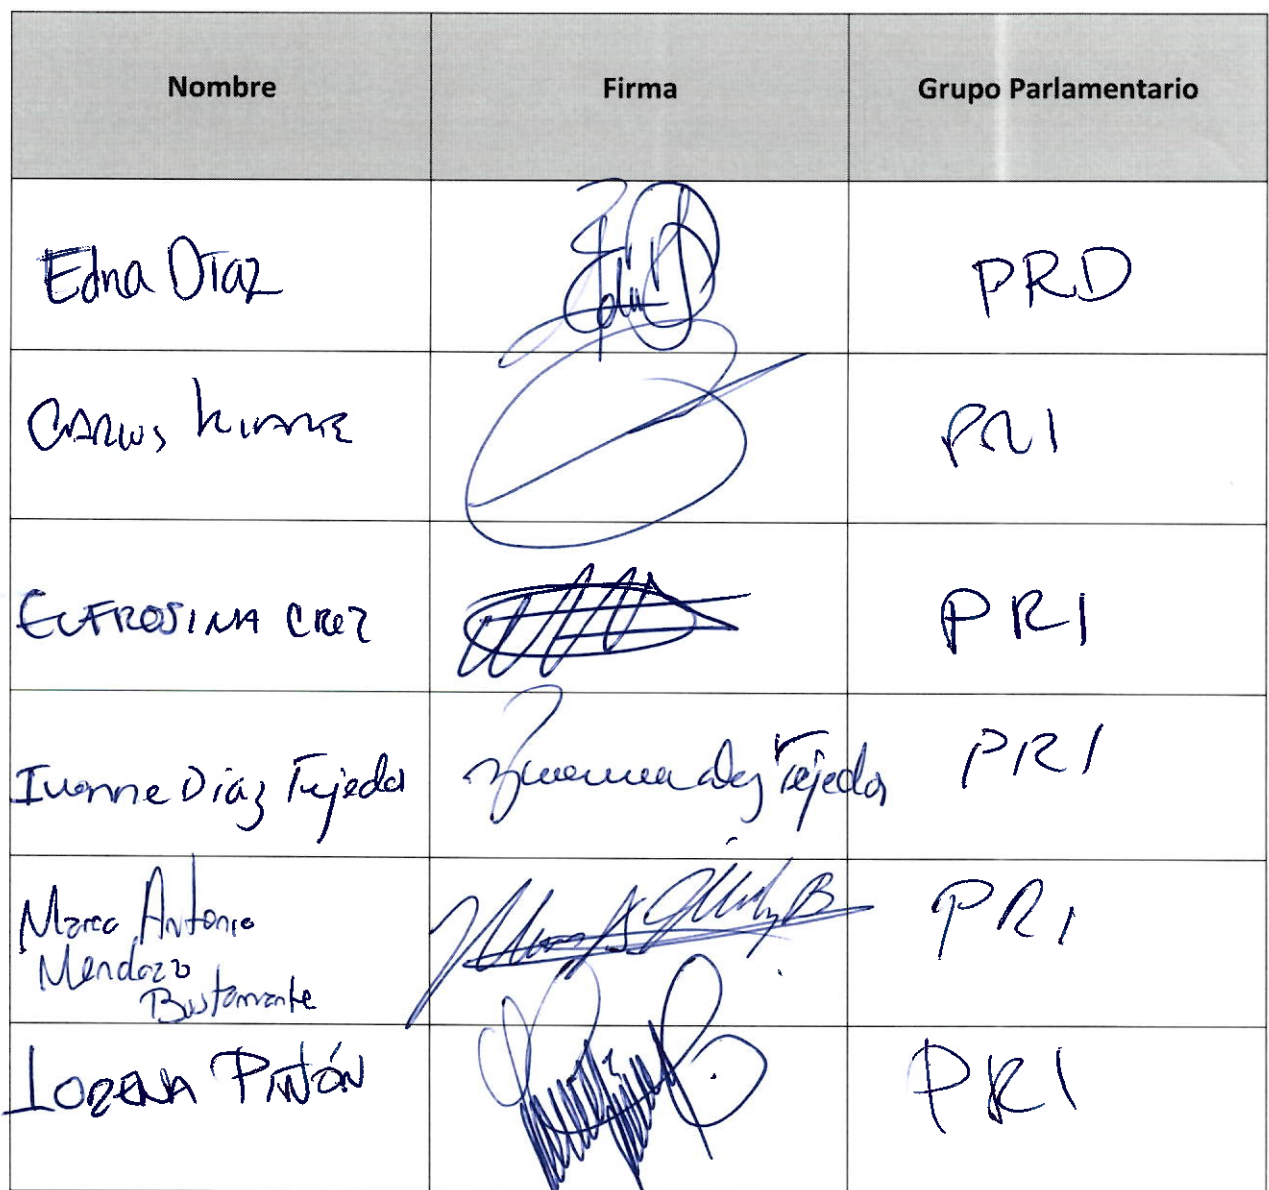 Nombre Firma Grupo Parlamentario
Edna Díaz PRD
CARLOS PRI
EUFROSINA CRUZ PRI
Ivonne Díaz Tejeda Díaz Tejeda PRI
Marco Antonio PRI
Mendoza
Bustamante
LORENA PIÑÓN PRI